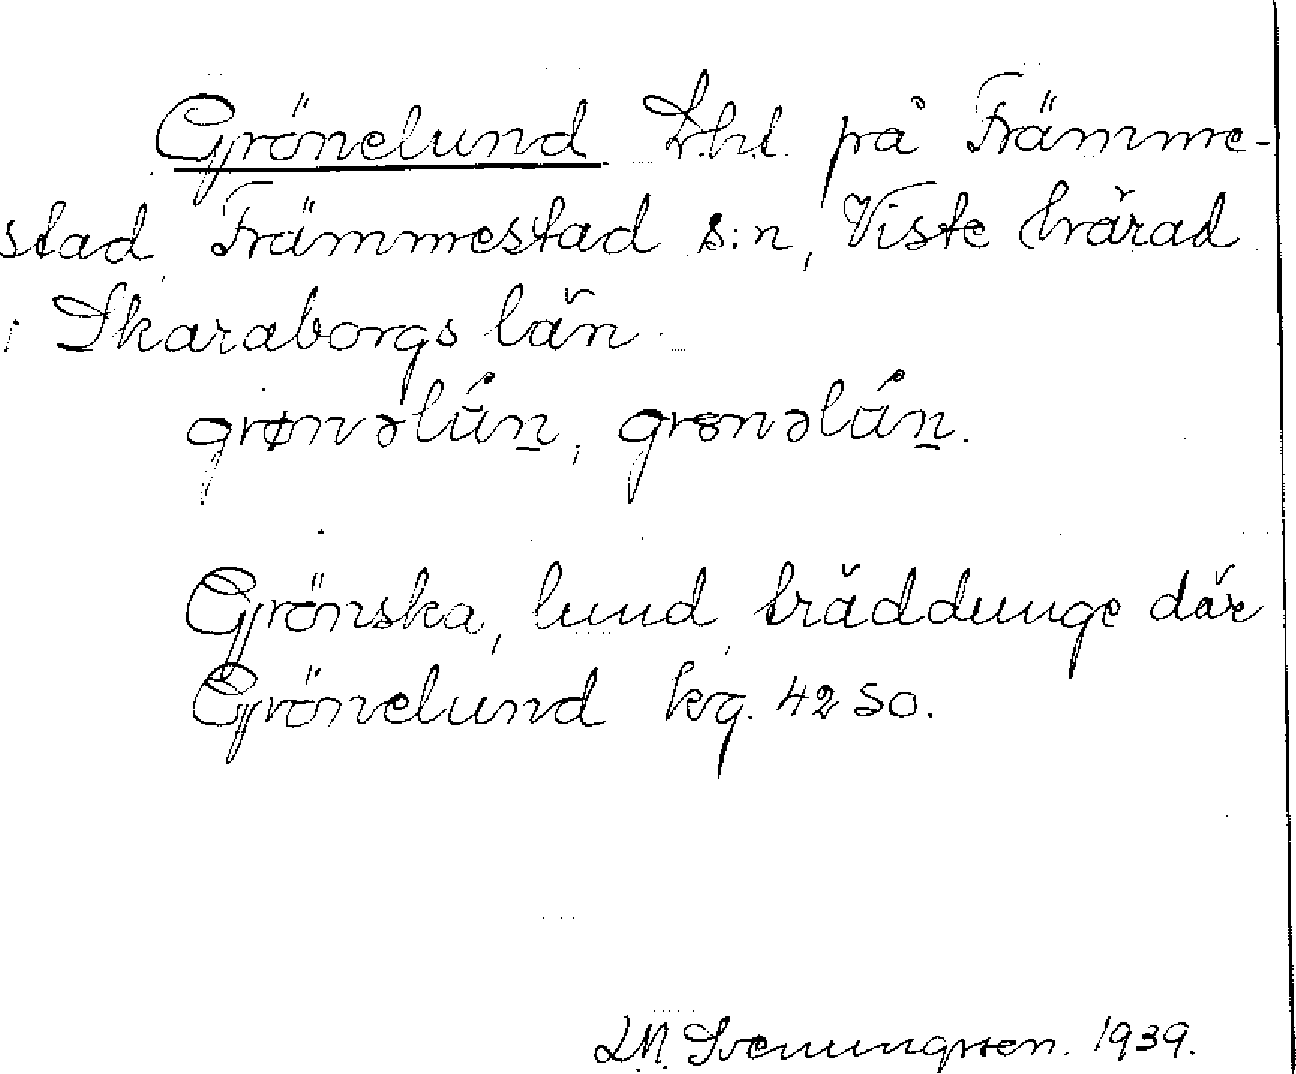 Grönelund L.h.l. på Främme-
stad, Främmestad s:n, Viste härad
i Skaraborgs län.
grønəlún̲, grɵnəlún̲.
Grönska, lund, träddunge där
Grönelund kg. 4250.
L.M. Svenungsson. 1939.